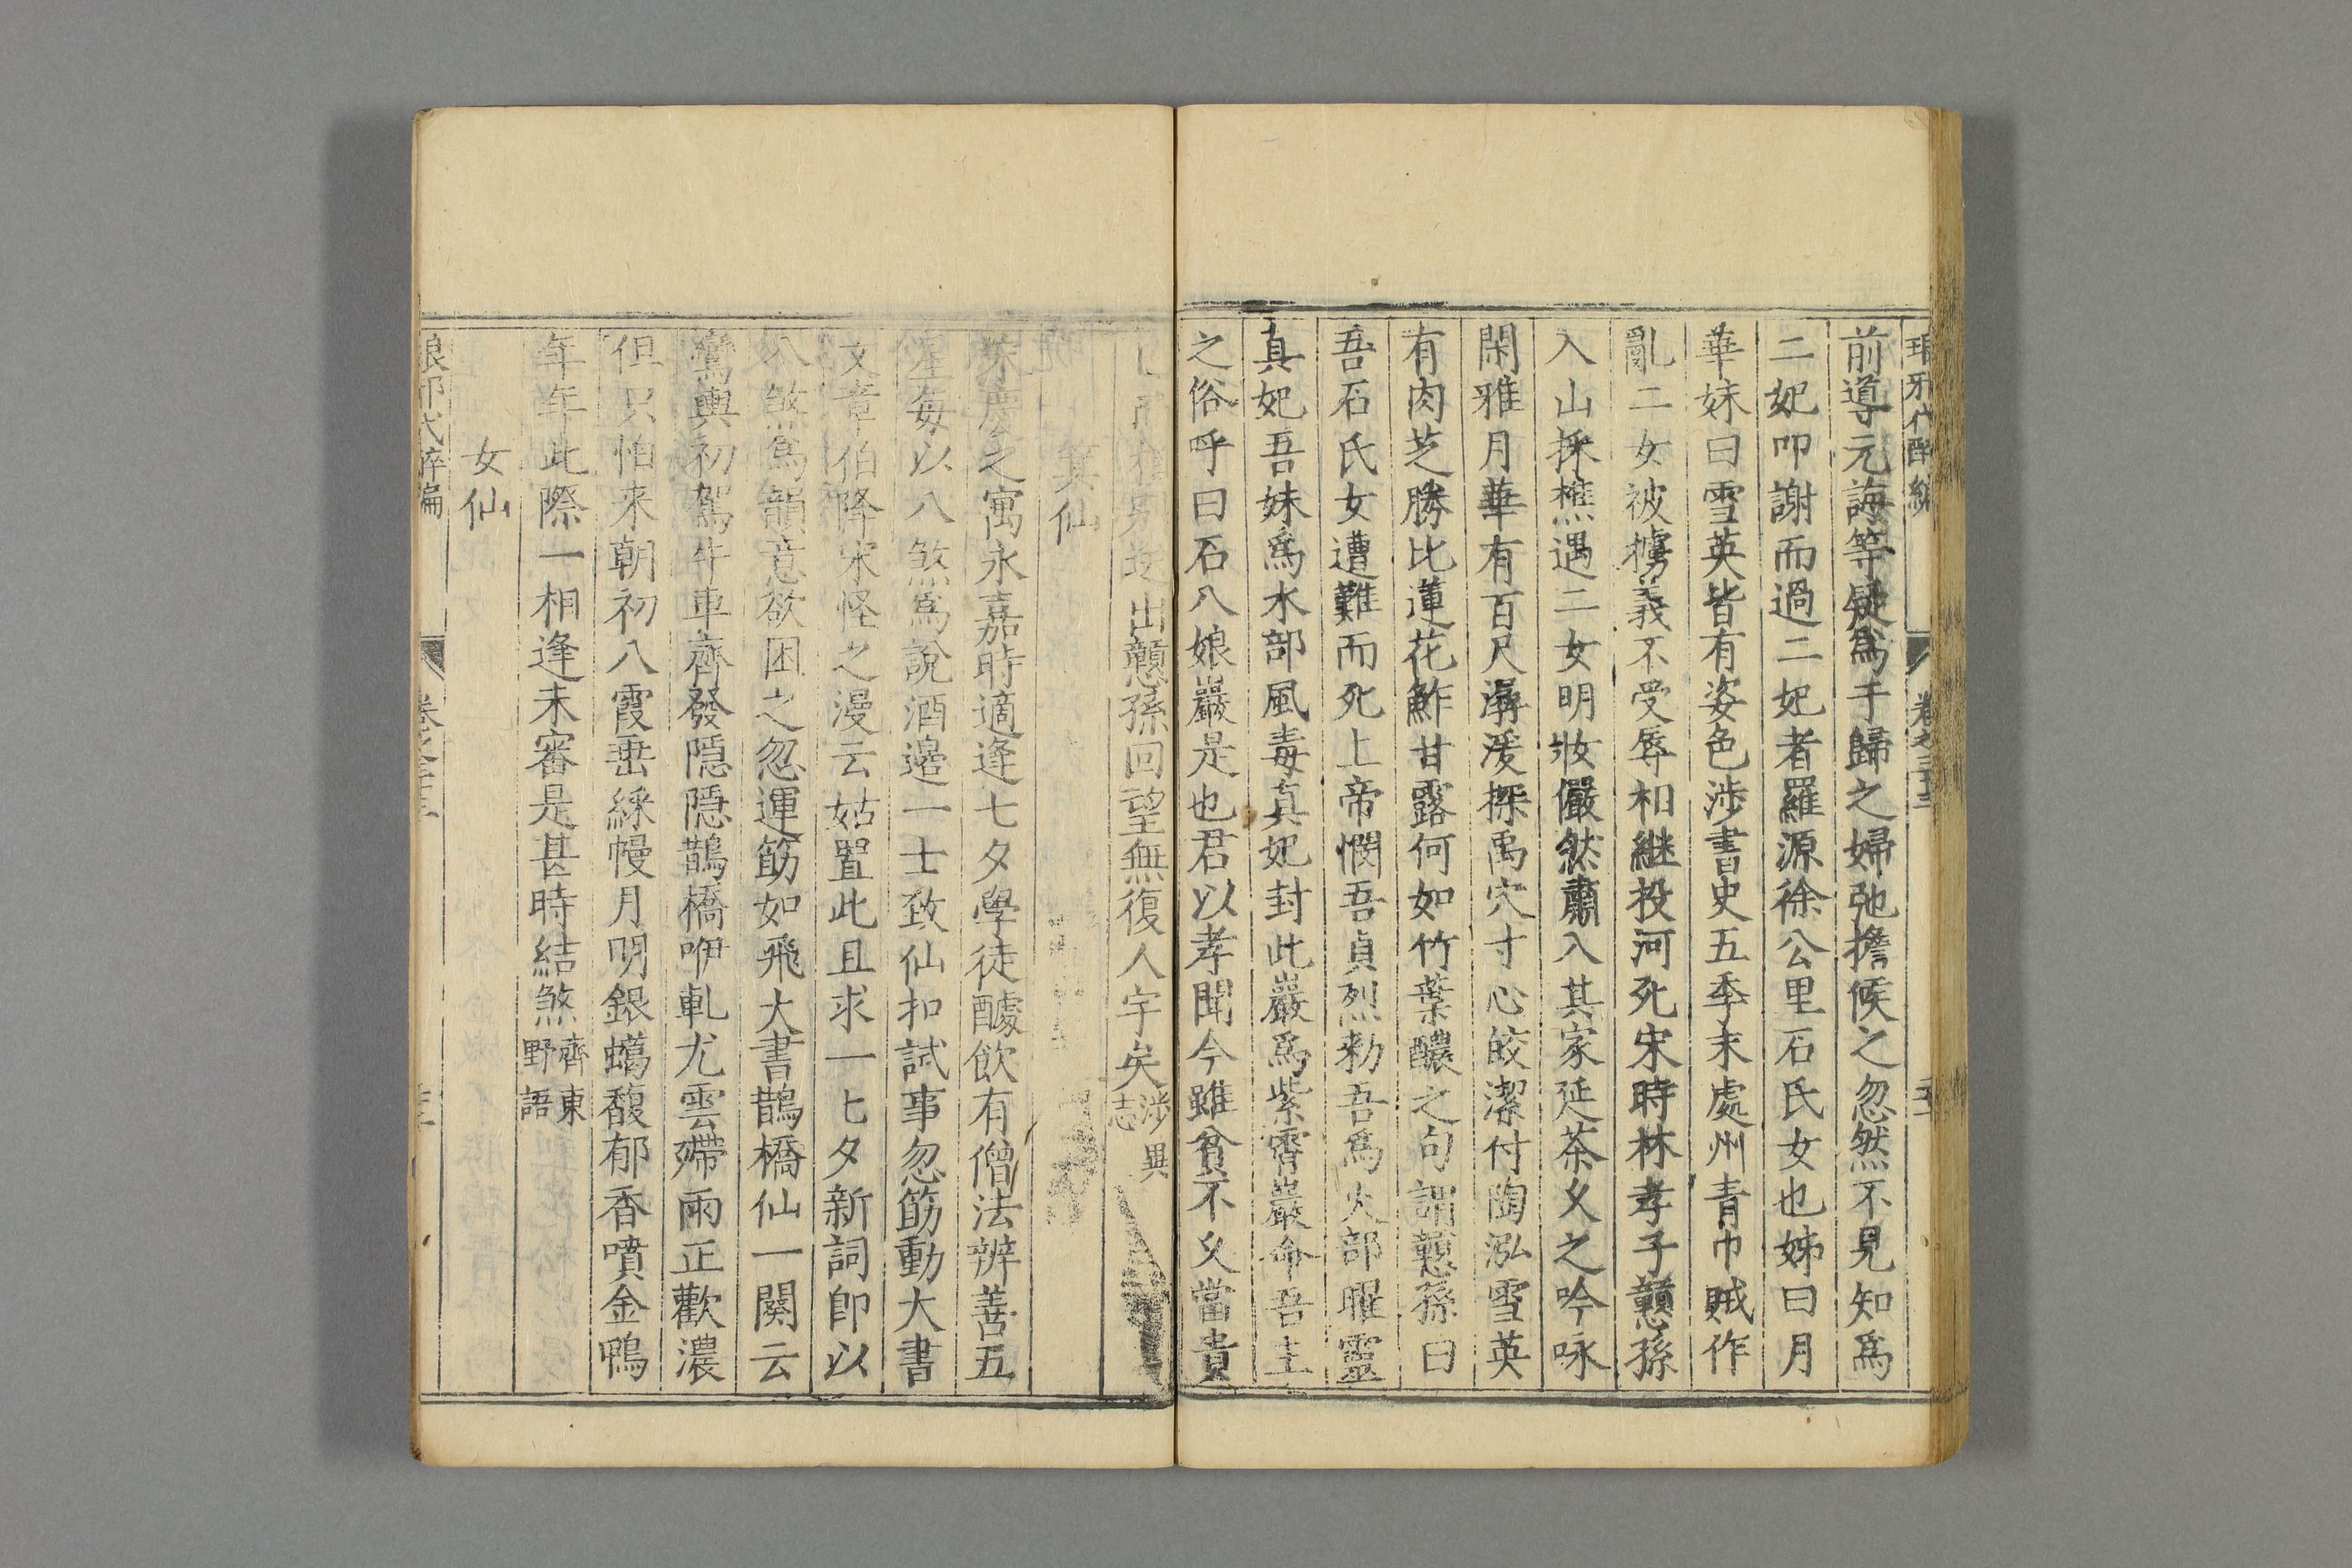 琅邪代醉編 卷之三十三 五
前導元誨等疑爲手歸之婦弛擔候之忽然不見知爲
二妃叩謝而過二妃者羅源徐公里石氏女也姊曰月
華妹曰雪英皆有姿色涉書史五季末處州青巾賊作
亂二女被擄義不受辱相継投河死宋時林孝子戇孫
入山採樵遇二女明妝儼然肅入其家延茶久之吟咏
閑雅月華有百尺潺湲探禹穴寸心皎潔付陶泓雪英
有肉芝勝比蓮花鮓甘露何如竹葉醲之句謂戇孫曰
吾石氏女遭難而死上帝憫吾貞烈勑吾爲火部曜靈
真妃吾妹爲水部風毒真妃封此巖爲紫霄巖命吾主
之俗呼曰石八娘巖是也君以孝聞今雖貧不久當貴
出戇孫回望無復人宇矣涉異志
箕仙
宋慶之寓永嘉時適逢七夕學徒醵飲有僧法辨善五
星每以八煞爲說酒邉一士致仙扣試事忽筯動大書
文章伯降宋怪之漫云姑置此且求一七夕新詞即以
八煞爲韻意欲困之忽運筯如飛大書鵲橋仙一闋云
鸞輿初駕牛車齊發隠隠鵲橋咿軋尤雲殢雨正歡濃
但只怕来朝初八霞垂綵幔月明銀蠟馥郁香噴金鴨
年年此際一相逢未審是甚時結煞齊東野語
女仙
琅邪代醉編 卷之三十三